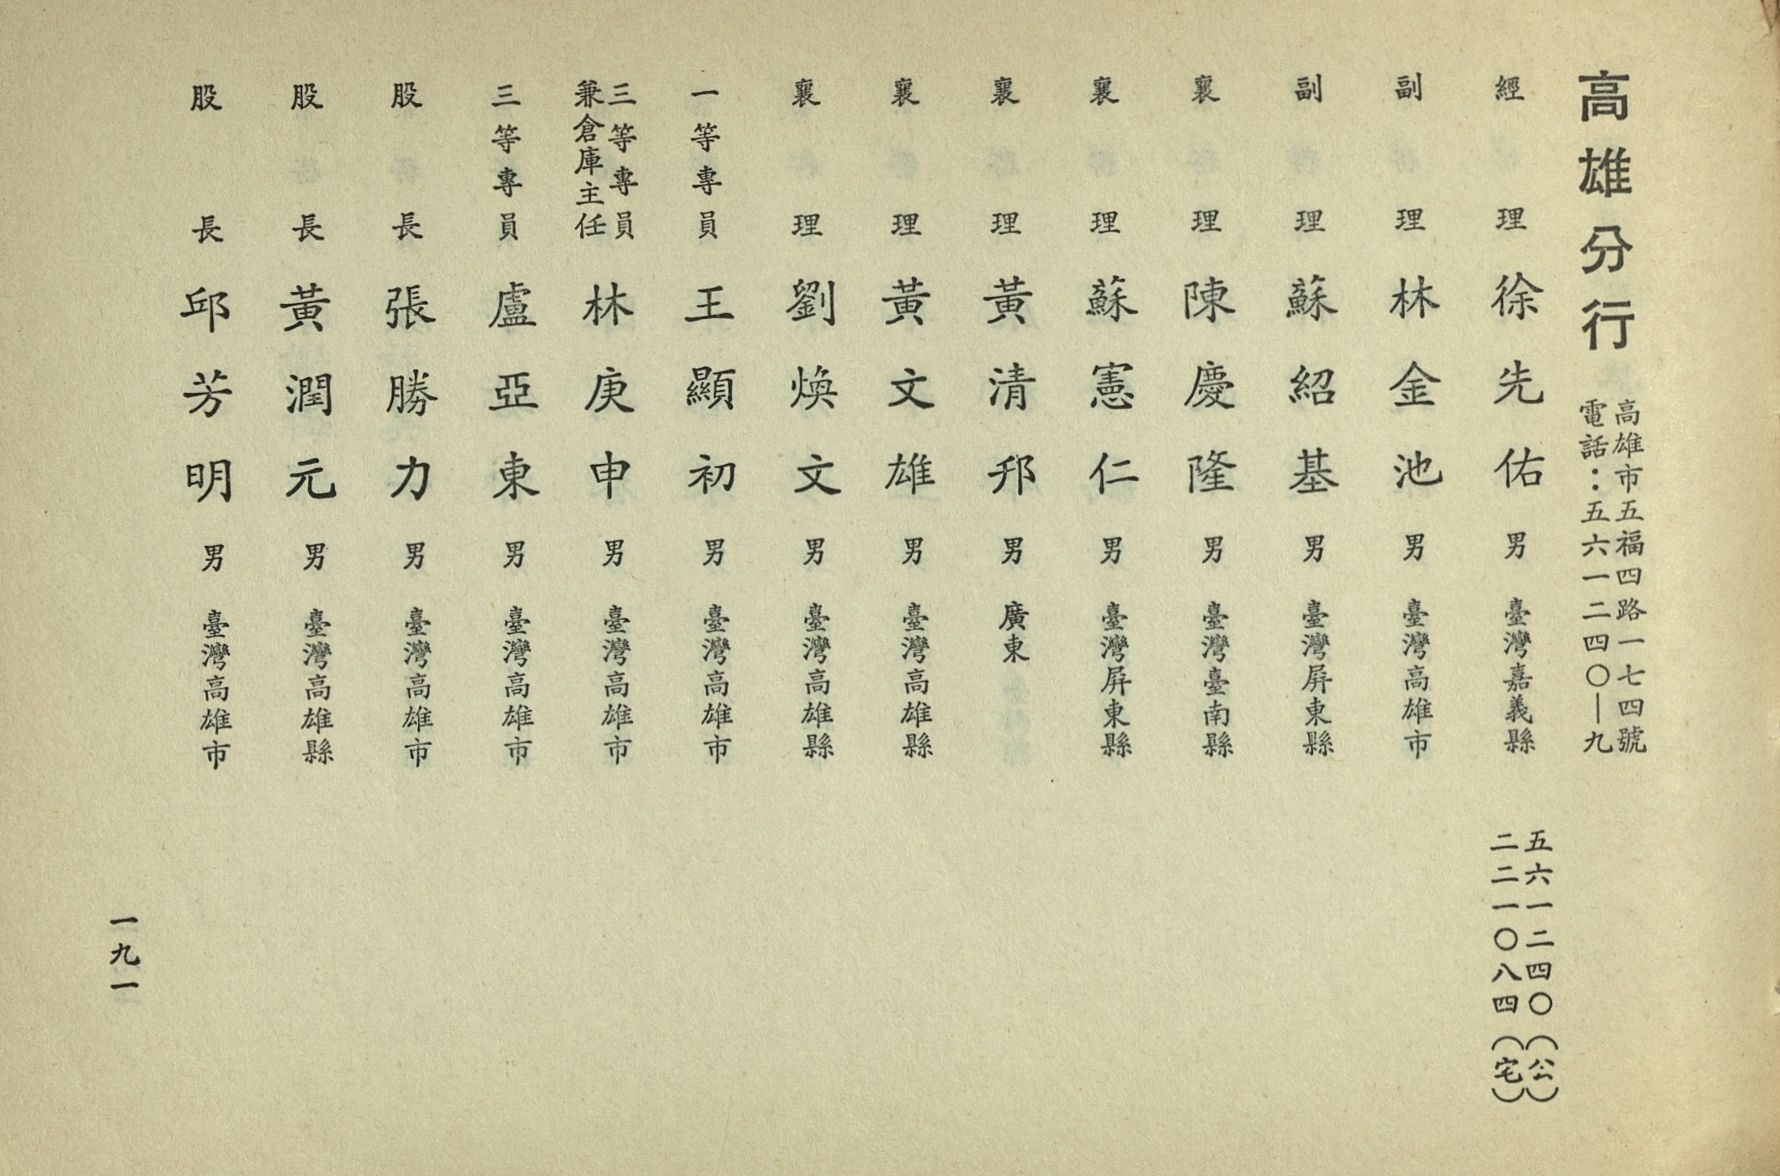 高雄分行
高雄市五福四路一七四號
電話：五六一二四〇—九
經理 徐先佑 男 臺灣嘉義縣
五六一二四〇（公）
二二一〇八四（宅）
副理 林金池 男 臺灣高雄市
副理 蘇紹基 男 臺灣屏東縣
襄理 陳慶隆 男 臺灣臺南縣
襄理 蘇憲仁 男 臺灣屏東縣
襄理 黃清邦 男 廣東
襄理 黃文雄 男 臺灣高雄縣
襄理 劉煥文 男 臺灣高雄縣
一等專員 王顯初 男 臺灣高雄市
三等專員
兼倉庫主任 林庚申 男 臺灣高雄市
三等專員 盧亞東 男 臺灣高雄市
股長 張勝力 男 臺灣高雄市
股長 黃潤元 男 臺灣高雄縣
股長 邱芳明 男 臺灣高雄市
一九一